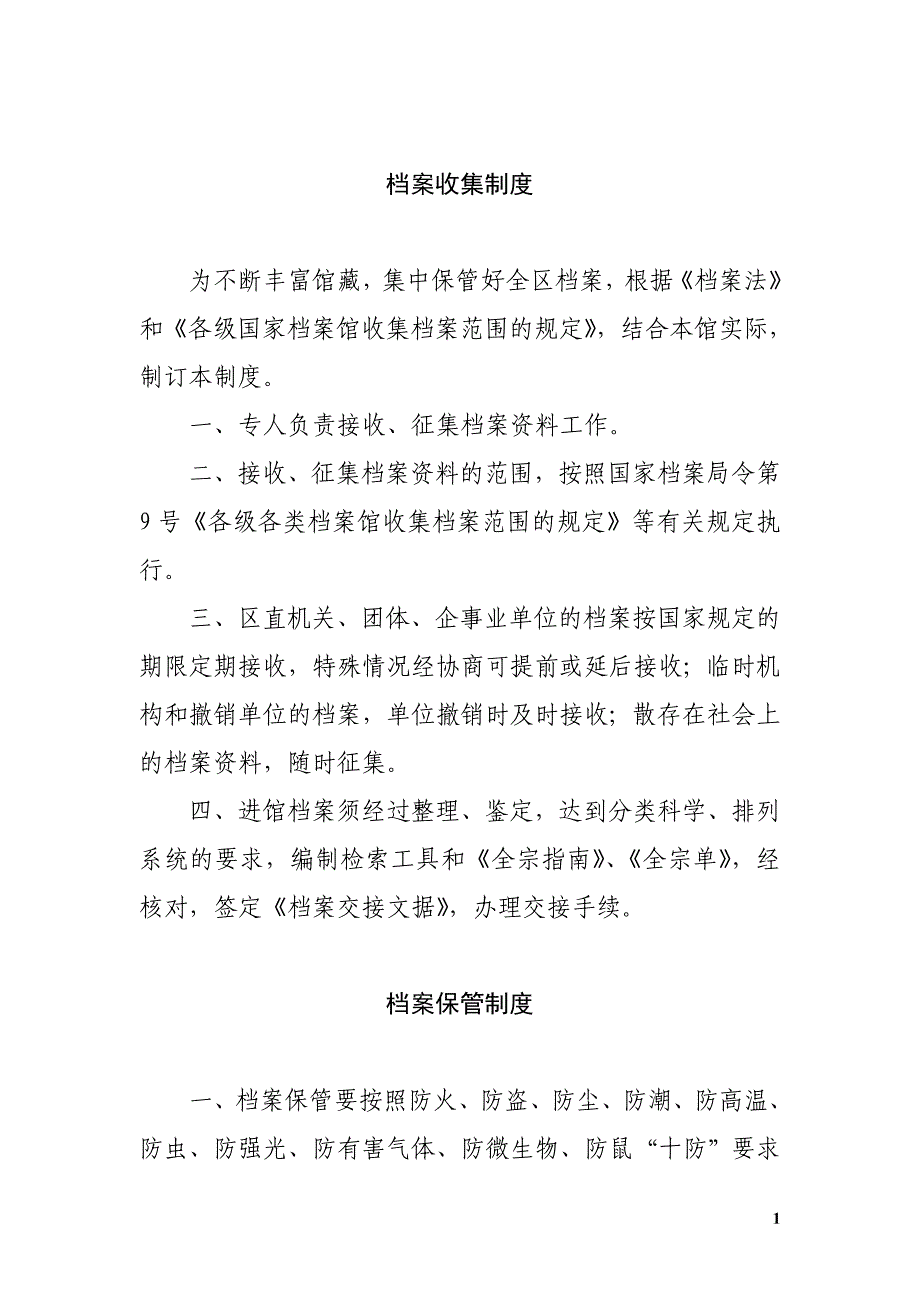 档案收集制度
为不断丰富馆藏，集中保管好全区档案，根据《档案法》
和《各级国家档案馆收集档案范围的规定》，结合本馆实际，
制订本制度。
一、专人负责接收、征集档案资料工作。
二、接收、征集档案资料的范围，按照国家档案局令第
9 号《各级各类档案馆收集档案范围的规定》等有关规定执
行。
三、区直机关、团体、企事业单位的档案按国家规定的
期限定期接收，特殊情况经协商可提前或延后接收；临时机
构和撤销单位的档案，单位撤销时及时接收；散存在社会上
的档案资料，随时征集。
四、进馆档案须经过整理、鉴定，达到分类科学、排列
系统的要求，编制检索工具和《全宗指南》、《全宗单》，经
核对，签定《档案交接文据》，办理交接手续。
档案保管制度
一、档案保管要按照防火、防盗、防尘、防潮、防高温、
防虫、防强光、防有害气体、防微生物、防鼠“十防”要求
1